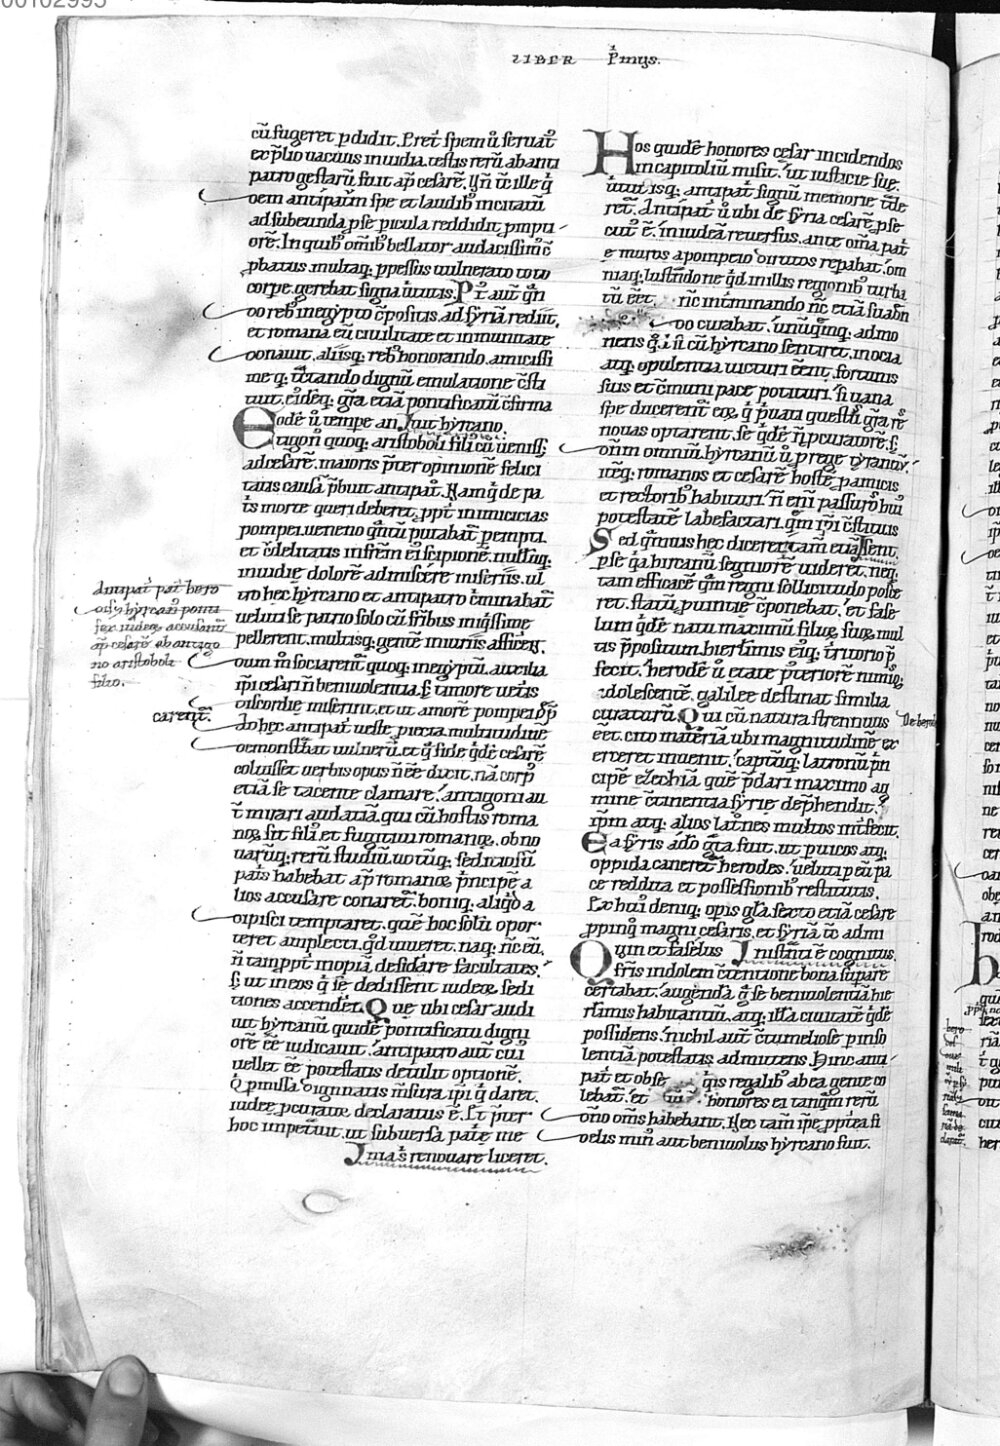 00102995
LIBER Pͥmus.
cū fugeret ꝑdidit. Pret̄ spem ů seruat᷒
ex p̄lio uacuus inuidia. testis rerū ab anti
patro gestarū fuit ap̄ cesarē.
oem antipatrū spe et laudib᷒ incitatū
ad subeunda ꝓ se picula reddidit ꝓmpti
orē. In quib᷒ om̄ib᷒ bellator audacissim᷒ ē
ꝓbatus. multaq; ꝑpessus uulnerato toto
corpe. gerebat signa uirtutis. P᷒t aut̄ q̄n
do reb᷒ in egypto cōpositis. ad syriā rediit.
et romana eū ciuilitate et inmunitate
donauit. aliisq; reb᷒ honorando. amicissi
me q; tractando dignū emulatione c̄sti
tuit. eiꝰdēq; gr̄a etiā pontificatū c̄firma
uit hyrcano.
Eodē ů tempe an
tigon᷒ quoq; aristoboli fili᷒ cū ueniss;
ad cesarē. maioris p̄ter opinionē felici
tatis causā p̄buit antipat᷒. Namq; de pa
t̄s morte queri deberet. ꝓpt̄ inimicicias
pompei. ueneno q̄ntū putabat̄ pempti.
et c̄delitatis insr̄em ei᷒ scipionē. nullūq;
inuidie dolorē admiscēre miseriis. ul
tro hec hyrcano et antipatro c̄minabat̄
ueluti se patrio solo cū fr̄ibus iniq̄ssime
pellerent. multisq; gentē iniuriis afficerēt.
dum n̄ sociarent̄ quoq; in egyptū. auxilia
ip̄i cesari n̄ beniuolentia. s; timore uet̄is
discordie miserint. et ut amorē pompei
carerent̄.
Ad hec antipat᷒ ueste piecta multitudinē
demonst̄bat uulnerū. et q̄ fide q̄dē cesarē
coluisset uerbis opus n̄ eē dicit. nā corp᷒
etiā se tacente clamare. antigoni au
t̄ mirari audatiā. qui cū hostis roma
noꝝ sit fili᷒. et fugitiui romanoꝝ. ob no
uarūq; rerū studiū uotūq; seditiosū
pat̄s habebat ap̄ romanoꝝ p̄ncipē a
lios accusare conaret̄. boniq; aliq̇d a
dipisci temptaret. quē hoc solū opor
teret amplecti. q̇d uiueret. naq; n̄c eū.
n̄ tam ꝓpt̄ inopiā desidare facultates.
s; ut in eos q̇ se dedissent iudeoꝝ sedi
tiones accenderet. Que ubi cesar audi
uit hyrcanū quidē pontificatu digni
orē eē iudicauit. antipatro aut̄ cui᷒
uellet eē potestatis detulit optionē.
Q̇ pmissa dignitatis m̄sura ip̄i q̇ daret.
iudee ꝓcurator declaratus ē. Et p̄ter
hoc impet̄uit. ut subuersa pat̄e me
nia s̄ renouare liceret.
Hos quidē honores cesar incidendos
in capitoliū misit. ut iusticie sue.
uirtutisq; antipat̄ signū memorie t̄de
ret̄. Antipat᷒ ů ubi de syria cesarē ꝓse
cut᷒ ē. in iudeā reuersus. ante om̄ia pat̄
e muros a pompeio dirutos reparabat. om
niaq; lustrando ne q̇d in illis regionib᷒ turba
tū eēt. n̄c int̄minando n̄c etiā suadn
do curabat. unūq̄nq; admo
nens q̇ i s; cū hyrcano sentiret. in ocia
atq; opulentia uicturi eēnt. fortunis
suis et c̄muni pace potituri. si uana
spe ducerent̄ eoꝝ q̇ p̄uati questus gr̄a reꝝ
nouas optarent. se q̇dē ꝓ ꝓcuratore. s;
dn̄m omniū. hyrcanū ů ꝓ rege tyrannū.
itēq; romanos et cesarē hostē ꝓ amicis
et rectorib᷒ habituri. n̄ eni passuros hui᷒
potestatē labefactari. q̄m ip̄i c̄stituis
sent.
Sed q̄muis hec diceret tam̄ etiā
ꝓ se q̇a hircanū segniorē uideret. neq;
tam efficacē q̄m regni sollicitudo posce
ret. statū puintie c̄ponebat. et fase
lum q̇dē natu maximū filioꝝ suoꝝ mul
tis p̄positum hierl̄imis ei᷒q; t̄ritorio p̄
fecit. herodē ů etate p̄teriorē nimioq;
adolescentē. galilee destinat similia
curaturū. Qui cū natura strennuus
eēt. cito materiā ubi magnitudinē ex
erceret inuenit. captūq; latronū p̄n
cipē ezechiā. quē p̄dari maximo ag
mine c̄tinentia syrie dep̄hendit.
ip̄m atq; alios lat̄nes multos int̄fecit.
Ea syris adō gr̄ta fuit. ut ꝑ uicos atq;
oppida caneret̄ herodes. ueluti ꝑ eū pa
ce reddita et possessionib᷒ restitutis.
Ex hui᷒ deniq; opis gl̄a sexto etiā cesare
ꝓpinq᷒ magni cesaris. et syriā tō admi
nistranti ē cognitus.
Quin et faselus
fr̄is indolem c̄tentione bona supare
certabat. augenda q̇ se beniuolentiā hie
rl̄imis habitantiū. atq; illā ciuitatē q̇dē
possidens. nichil aut̄ c̄tumeliose ꝓ inso
lentiā potestatis admittens. Hinc anti
pat̄ et obse q̇is regalib᷒ ab ea gente co
lebat̄. et honores ei tanq̄m rerū
dn̄o om̄s habebant. Nec tam̄ ip̄e ꝓpt̄ea fi
delis min᷒ aut beniuolus hyrcano fuit.
Antipat̄ pat̄ hero
dis hyrcan᷒ ponti
fex iudeoꝝ accusant̄
ap̄ cesarē ab antigo
no aristoboli
filio.
De herode